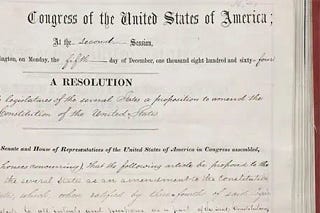 Congress of the United States of America;
At the second Session,
ington, on Monday, the fifth day of December, one thousand eight hundred and sixty-four
A RESOLUTION
legislatures of the several States a proposition to amend the
Constitution of the United States
Senate and House of Representatives of the United States of America in Congress assembled,
houses concurring), that the following article be proposed to the
the several States as an amendment to the Constitution
which, when ratified by three-fourths of said
as a part of the said Constitution